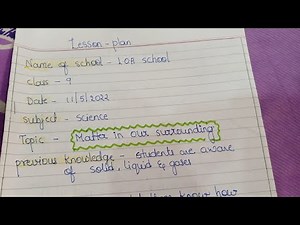 Lesson - plan
Name of school - LOB school
class - 9
Date - 11/5/2022
subject - Science
Topic - Matter in our surrounding
previous knowledge - students are aware
of solid, liquid & gases
know how